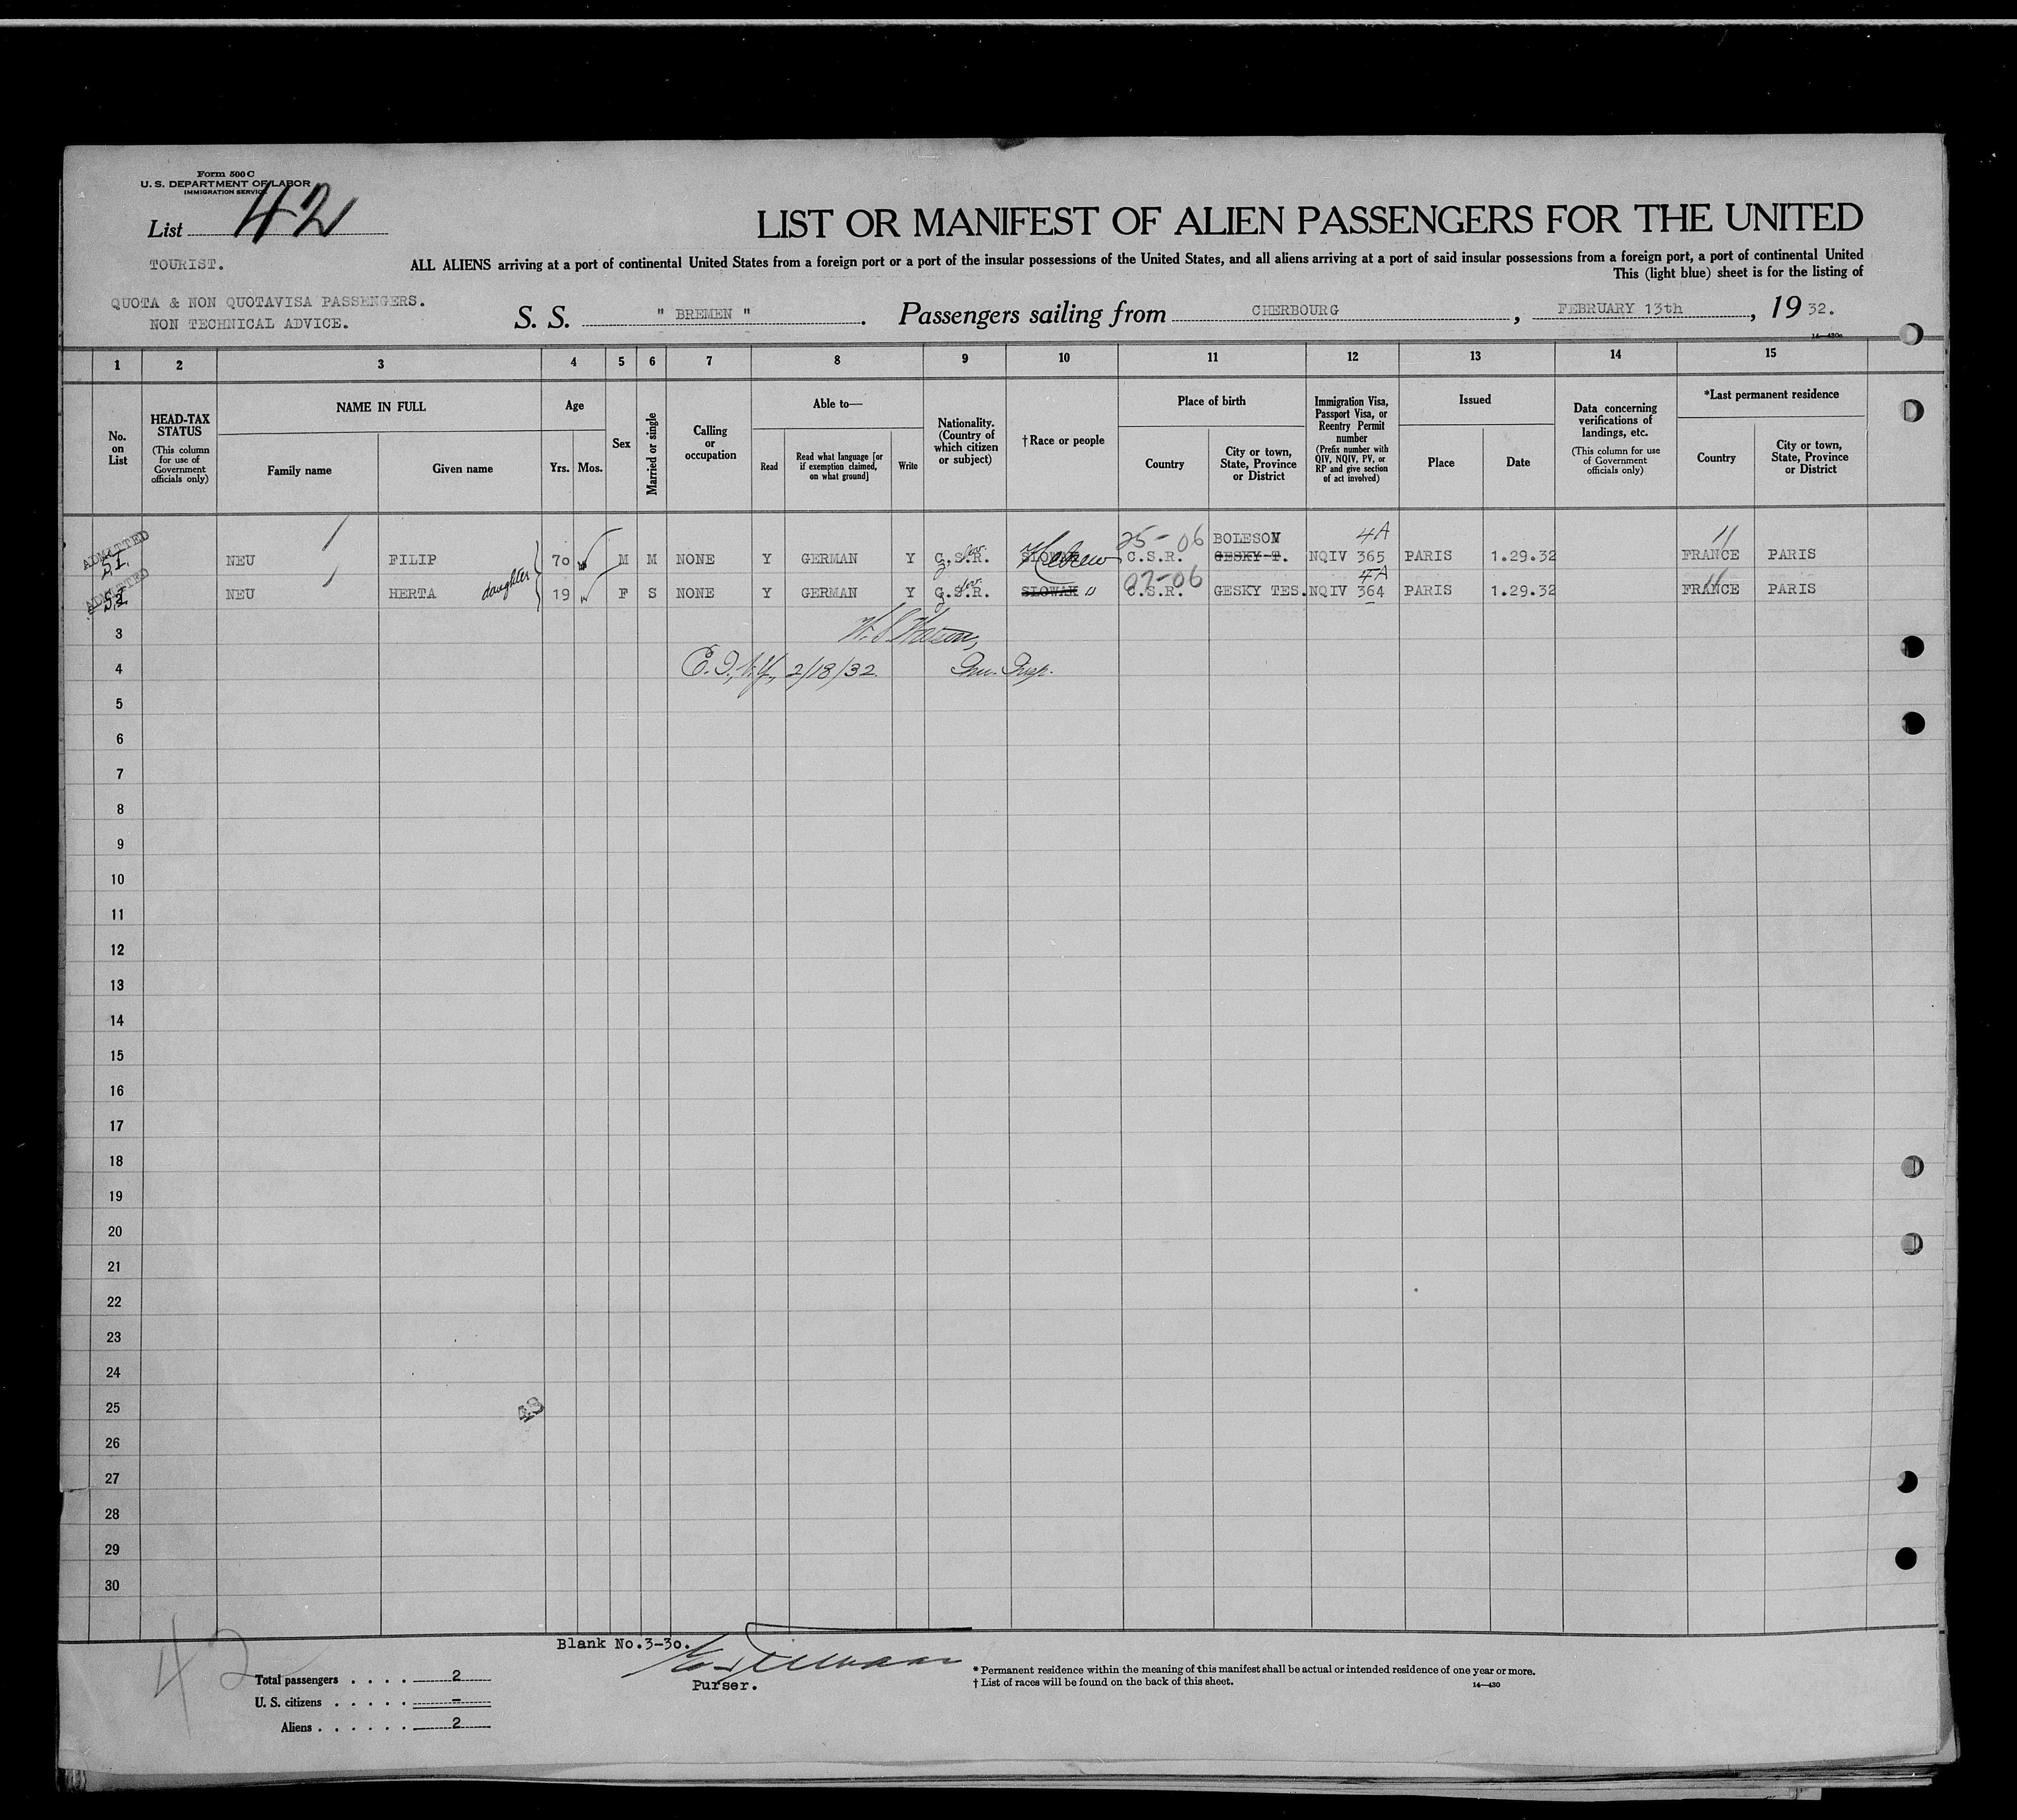 Form 500 C
U. S. DEPARTMENT OF LABOR
IMMIGRATION SERVICE
List 42
LIST OR MANIFEST OF ALIEN PASSENGERS FOR THE UNITED
TOURIST.
ALL ALIENS arriving at a port of continental United States from a foreign port or a port of the insular possessions of the United States, and all aliens arriving at a port of said insular possessions from a foreign port, a port of continental United
This (light blue) sheet is for the listing of
QUOTA & NON QUOTAVISA PASSENGERS.
NON TECHNICAL ADVICE.
S. S. " BREMEN ". Passengers sailing from CHERBOURG, FEBRUARY 13th, 19 32.
1 2 3 4 5 6 7 8 9 10 11 12 13 14 15
No. on List
HEAD-TAX STATUS
(This column for use of Government officials only)
NAME IN FULL
Family name
Given name
Age
Yrs. Mos.
Sex
Married or single
Calling or occupation
Able to—
Read
Read what language [or if exemption claimed, on what ground]
Write
Nationality. (Country of which citizen or subject)
†Race or people
Place of birth
Country
City or town, State, Province or District
Immigration Visa, Passport Visa, or Reentry Permit number
(Prefix number with QIV, NQIV, PV, or RP and give section of act involved)
Issued
Place
Date
Data concerning verifications of landings, etc.
(This column for use of Government officials only)
*Last permanent residence
Country
City or town, State, Province or District
25-06 BOLESON 4A
ADMITTED NEU FILIP 70 M M NONE Y GERMAN Y C.S.R. SLOWAK Hebrew C.S.R. GESKY T. NQIV 365 PARIS 1.29.32 FRANCE PARIS
07-06 4A
ADMITTED NEU HERTA daughter 19 F S NONE Y GERMAN Y C.S.R. SLOWAK " C.S.R. GESKY TES. NQIV 364 PARIS 1.29.32 FRANCE PARIS
3
4 E.I., N.Y., 2/18/32. Imm. Insp.
5
6
7
8
9
10
11
12
13
14
15
16
17
18
19
20
21
22
23
24
25
26
27
28
29
30
Blank No.3-30.
42
Total passengers . . . . 2
U. S. citizens . . . . . –
Aliens . . . . . . 2
Purser.
* Permanent residence within the meaning of this manifest shall be actual or intended residence of one year or more.
† List of races will be found on the back of this sheet.
14—430